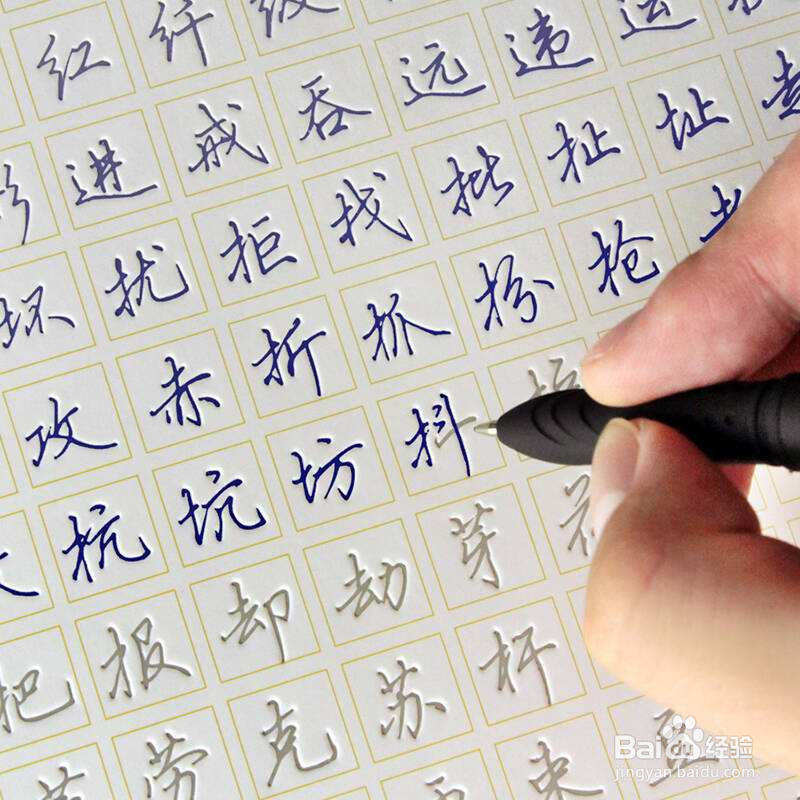 红 纤 级
进 戒 吞 远 违 运
形 扰 拒 找 批 扯 址 走
坏 赤 折 抓 扮 抢 孝
攻 坑 坊 抖
抗 却 劫 芽
把 报 克 苏 杆
劳
Baidu经验
jingyan.baidu.com